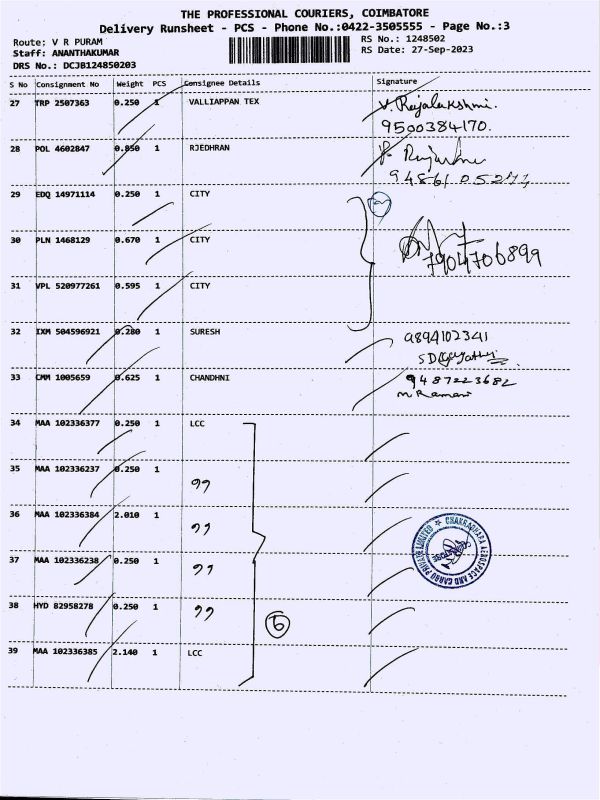 THE PROFESSIONAL COURIERS, COIMBATORE
Delivery Runsheet - PCS - Phone No.:0422-3505555 - Page No.:3
Route: V R PURAM
RS No.: 1248502
Staff: ANANTHAKUMAR
RS Date: 27-Sep-2023
DRS No.: DCJB124850203
S No Consignment No Weight PCS Consignee Details Signature
27 TRP 2507363 0.250 1 VALLIAPPAN TEX V. Rajalakshmi.
9500384170.
28 POL 4602847 0.050 1 RJEDHRAN
29 EDQ 14971114 0.250 1 CITY
30 PLN 1468129 0.670 1 CITY
7904706899
31 VPL 520977261 0.595 1 CITY
32 IXM 504596921 0.280 1 SURESH 9894102341
33 CMM 1005659 0.625 1 CHANDHNI 9487223682
M Ramani
34 MAA 102336377 0.250 1 LCC
35 MAA 102336237 0.250 1 ,,
36 MAA 102336384 2.010 1 ,,
37 MAA 102336238 0.250 1 ,,
38 HYD 82958278 0.250 1 ,,
6
39 MAA 102336385 2.140 1 LCC
CHAKRADHARA AEROSPACE AND CARGO PRIVATE LIMITED